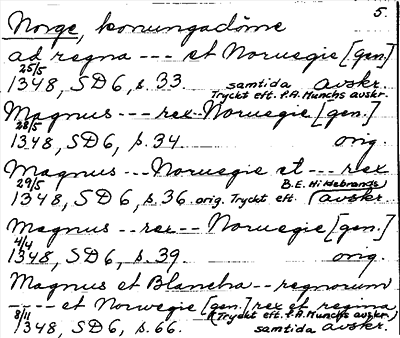 5.
Norge, konungadöme
ad regna --- et Noruegie [gen.]
25/5
1348, SD6, s. 33. samtida avskr.
Tryckt eft. P.A. Munchs avskr.
Magnus --- rex -- Noruegie [gen.]
28/5
1348, SD6, s. 34. orig.
Magnus --- Noruegie et --- rex
29/5 B.E. Hildebrands
1348, SD6, s. 36. orig. Tryckt eft. avskr.
Magnus -- rex -- Noruegie [gen.]
4/4
1348, SD6, s. 39. orig.
Magnus et Blancha -- regnorum
---- et Norwegie [gen.] rex et regina
8/11 (Tryckt eft. P.A. Munchs avskr.)
1348, SD6, s. 66. samtida avskr.